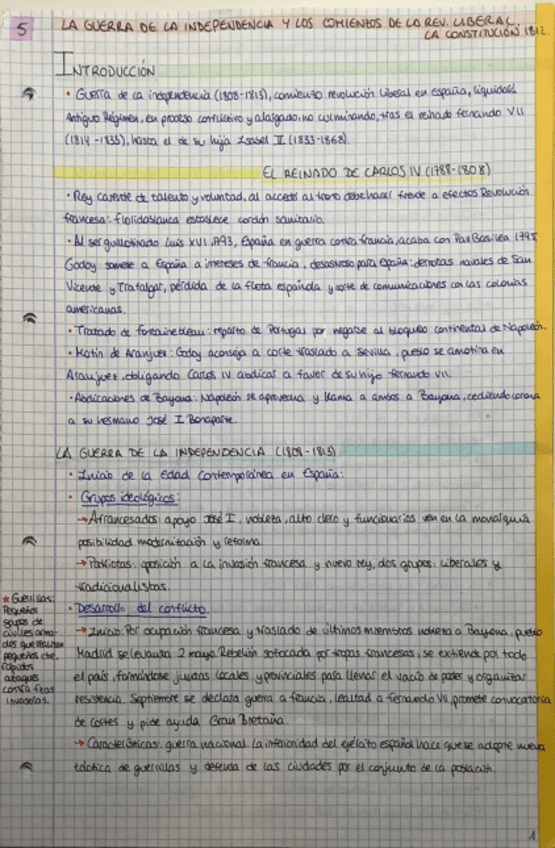 5
LA GUERRA DE LA INDEPENDENCIA Y LOS COMIENZOS DE LA REV. LIBERAL.
LA CONSTITUCIÓN 1812.
INTRODUCCIÓN
• Guerra de la independencia (1808-1813), comienzo revolución liberal en España, liquidará
Antiguo Régimen, en proceso conflictivo y alargado, no culminando, tras el reinado Fernando VII
(1814-1833), hasta el de su hija Isabel II (1833-1868).
EL REINADO DE CARLOS IV (1788-1808)
• Rey carente de talento y voluntad, al acceder al trono debe hacer frente a efectos Revolución
francesa: Floridablanca establece cordón sanitario.
• Al ser guillotinado Luis XVI, 1793, España en guerra contra Francia, acaba con Paz Basilea 1795
Godoy somete a España a intereses de Francia, desastroso para España: derrotas navales de San
Vicente y Trafalgar, pérdida de la flota española y corte de comunicaciones con las colonias
americanas.
• Tratado de Fontainebleau: reparto de Portugal por negarse al bloqueo continental de Napoleón.
• Motín de Aranjuez: Godoy aconseja a corte traslado a Sevilla, pueblo se amotina en
Aranjuez, obligando Carlos IV abdicar a favor de su hijo Fernando VII.
• Abdicaciones de Bayona: Napoleón se aprovecha y llama a ambos a Bayona, cediendo corona
a su hermano José I Bonaparte.
LA GUERRA DE LA INDEPENDENCIA (1808-1813)
• Inicio de la edad contemporánea en España:
• Grupos ideológicos:
→ Afrancesados: apoyo José I, nobleza, alto clero y funcionarios ven en la monarquía
posibilidad modernización y reforma.
→ Patriotas: oposición a la invasión francesa y nuevo rey, dos grupos: liberales y
tradicionalistas.
• Desarrollo del conflicto.
→ Inicio: Por ocupación francesa y traslado de últimos miembros nobleza a Bayona, pueblo
Madrid se levanta 2 mayo. Rebelión sofocada por tropas francesas, se extiende por todo
el país, formándose juntas locales y provinciales para llenar el vacío de poder y organizar
resistencia. Septiembre se declara guerra a Francia, lealtad a Fernando VII, promete convocatoria
de cortes y pide ayuda Gran Bretaña.
→ Características: guerra nacional. La inferioridad del ejército español hace que se adopte nueva
táctica de guerrillas y defensa de las ciudades por el conjunto de la población.
* Guerrillas:
Pequeños
grupos de
civiles arma-
dos que realizan
pequeños
rápidos
ataques
contra
invasoras.
1